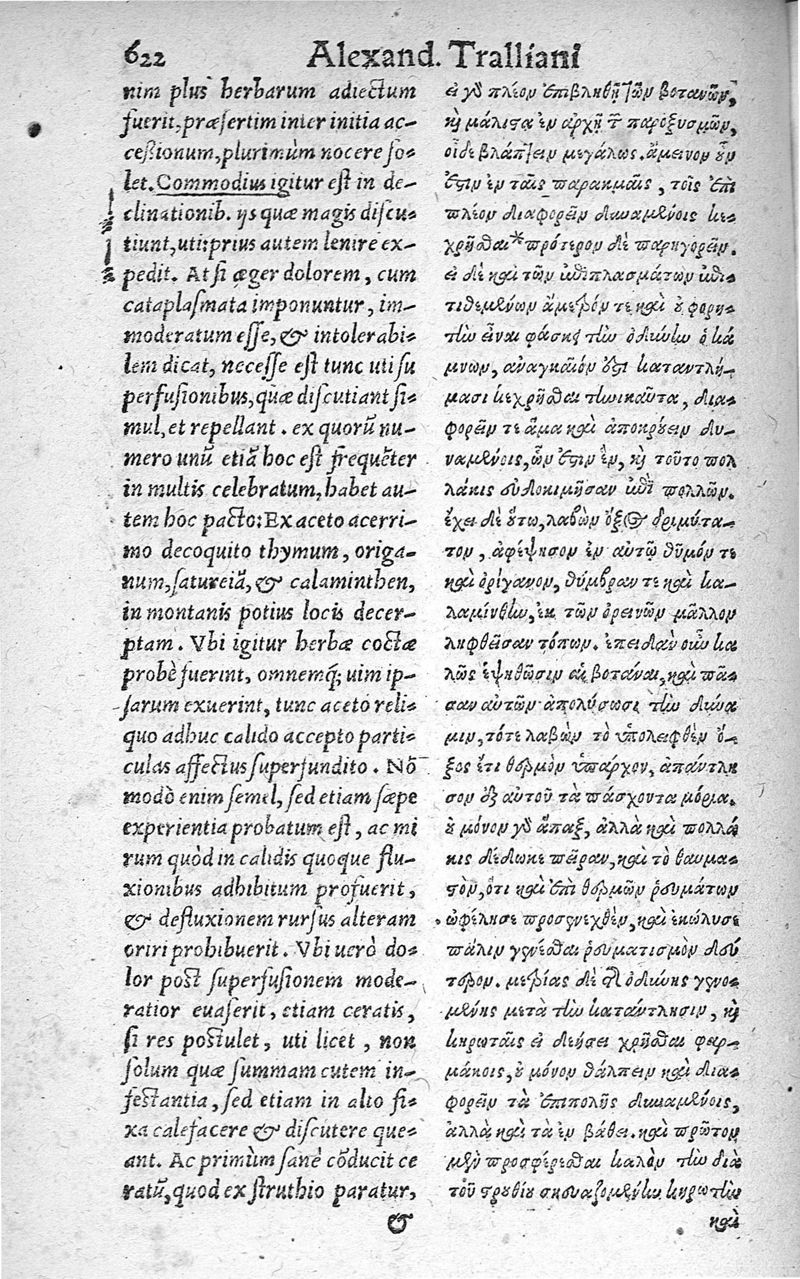 622 Alexand. Tralliani
nim plus herbarum adiectum
fuerit, præsertim inter initia ac-
cessionum, plurimùm nocere so-
let. Commodius igitur est in de-
clinationib. ijs quæ magis discu-
tiunt, uti: prius autem lenire ex-
pedit. At si æger dolorem, cum
cataplasmata imponuntur, im-
moderatum esse, & intolerabi-
lem dicat, necesse est tunc uti su
perfusionibus, quæ discutiant si-
mul, et repellant. ex quorũ nu-
mero unũ etiã hoc est frequẽter
in multis celebratum, habet au-
tem hoc pacto: Ex aceto acerri-
mo decoquito thymum, origa-
num, satureiã, & calaminthen,
in montanis potius locis decer-
ptam. Vbi igitur herbæ coctæ
probè fuerint, omnemq; uim ip-
sarum exuerint, tunc aceto reli-
quo adhuc calido accepto parti-
culas affectus superfundito. Nõ
modò enim semel, sed etiam sæpe
experientia probatum est, ac mi
rum quòd in calidis quoque flu-
xionibus adhibitum profuerit,
& defluxionem rursus alteram
oriri prohibuerit. Vbi uerò do-
lor post superfusionem mode-
ratior evaserit, etiam ceratis,
si res postulet, uti licet, non
solum quæ summam cutem in-
festantia, sed etiam in alto fi-
xa calefacere & discutere que-
ant. Ac primùm sanè cõducit ce
ratũ, quod ex struthio paratur,
&
εἰ γὸ πλέον ἐπιβληθῇ τῶν βοτανῶν,
καὶ μάλιστα ἐν ἀρχῇ τ παροξυσμῶν,
οἶδε βλάπτειν μεγάλως. ἄμεινον οὖν
ἐστιν ἐν ταῖς παρακμαῖς, τοῖς ἐπὶ
πλέον διαφορεῖν δυναμένοις κε-
χρῆσθαι* πρότερον δὲ παρηγορεῖν.
εἰ δὲ καὶ τῶν ἐπιπλασμάτων ἐπι-
τιθεμένων ἄμετρόν τε καὶ οὐ φορη-
τὴν εἶναι φάσκῃ τὴν ὀδύνην ὁ κά
μνων, ἀναγκαῖόν ἐστι καταντλή-
μασι κεχρῆσθαι τηνικαῦτα, δια-
φορεῖν τε ἅμα καὶ ἀποκρούειν δυ-
ναμένοις, ὧν ἐστιν ἓν, καὶ τοῦτο πολ
λάκις εὐδοκιμῆσαν ἐπὶ πολλῶν.
ἔχει δὲ οὕτω, λαβὼν ὄξος δριμύτα-
τον, ἀφέψησον ἐν αὐτῷ θύμόν τε
καὶ ὀρίγανον, θύμβραν τε καὶ κα-
λαμίνθην, ἐκ τῶν ὀρεινῶν μᾶλλον
ληφθεῖσαν τόπων. ἐπειδὰν οὖν κα
λῶς ἑψηθῶσιν αἱ βοτάναι, καὶ πᾶ-
σαν αὐτῶν ἀπολύσωσι τὴν δύνα
μιν, τότε λαβὼν τὸ ὑπολειφθὲν ὄ-
ξος ἔτι θερμὸν ὑπάρχον, ἀπάντλη
σον ἐξ αὐτοῦ τὰ πάσχοντα μόρια.
οὐ μόνον γὸ ἅπαξ, ἀλλὰ καὶ πολλά
κις δέδωκε πεῖραν, καὶ τὸ θαυμα-
στὸν, ὅτι καὶ ἐπὶ θερμῶν ῥευμάτων
ὠφέλησε προσενεχθὲν, καὶ ἐκώλυσε
πάλιν γενέσθαι ῥευματισμὸν δεύ
τερον. μετρίας δὲ τῆς ὀδύνης γενο-
μένης μετὰ τὴν κατάντλησιν, καὶ
κηρωταῖς εἰ δεήσει χρῆσθαι φαρ-
μάκοις, οὐ μόνον θάλπειν καὶ δια-
φορεῖν τὰ ἐπιπολῆς δυναμένοις,
ἀλλὰ καὶ τὰ ἐν βάθει. καὶ πρῶτον
μὲν προσφέρεσθαι καλὸν τὴν διὰ
τοῦ στρουθίου σκευαζομένην κηρωτὴν
καὶ